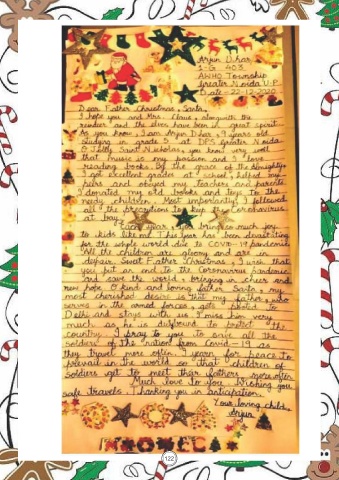 Arjun Dhar
1-G 403
AWHO Township
Greater Noida U.P
Date - 22-12-2020
Dear Father Christmas, Santa,
I hope you and Mrs. Claus, alongwith the
reindeer and the elves have been in great spirit.
As you know, I am Arjun Dhar, 9 years old
studying in grade 5 at DPS Greater Noida
O Jolly Saint Nicholas, you know very well
that music is my passion and I love
reading books. By the grace of the Almighty,
I got excellent grades at school, helped my
peers and obeyed my teachers and parents.
I donated my old books and toys to the
needy children. Most importantly, I followed
all the precautions to keep the coronavirus
at bay.
Each year, you bring so much joy
to kids like me. This year has been devastating
for the whole world due to COVID-19 pandemic.
All the children are gloomy and are in
despair. Sweet Father Christmas, I wish that
you put an end to the Coronavirus pandemic
and save the world, bringing in cheer and
new hope. O kind and loving father Santa, my
most cherished desire is that my father, who
serves in the armed forces, gets posted to
Delhi and stays with us. I miss him very
much as he is dutybound to protect the
country. I pray to you to save all the
soldiers of the nation from Covid-19 as
they travel more often. I yearn for peace to
prevail in the world so that children of
soldiers get to meet their fathers more often.
Much love to you, Wishing you
safe travels. Thanking you in anticipation.
Your loving child,
Arjun
122